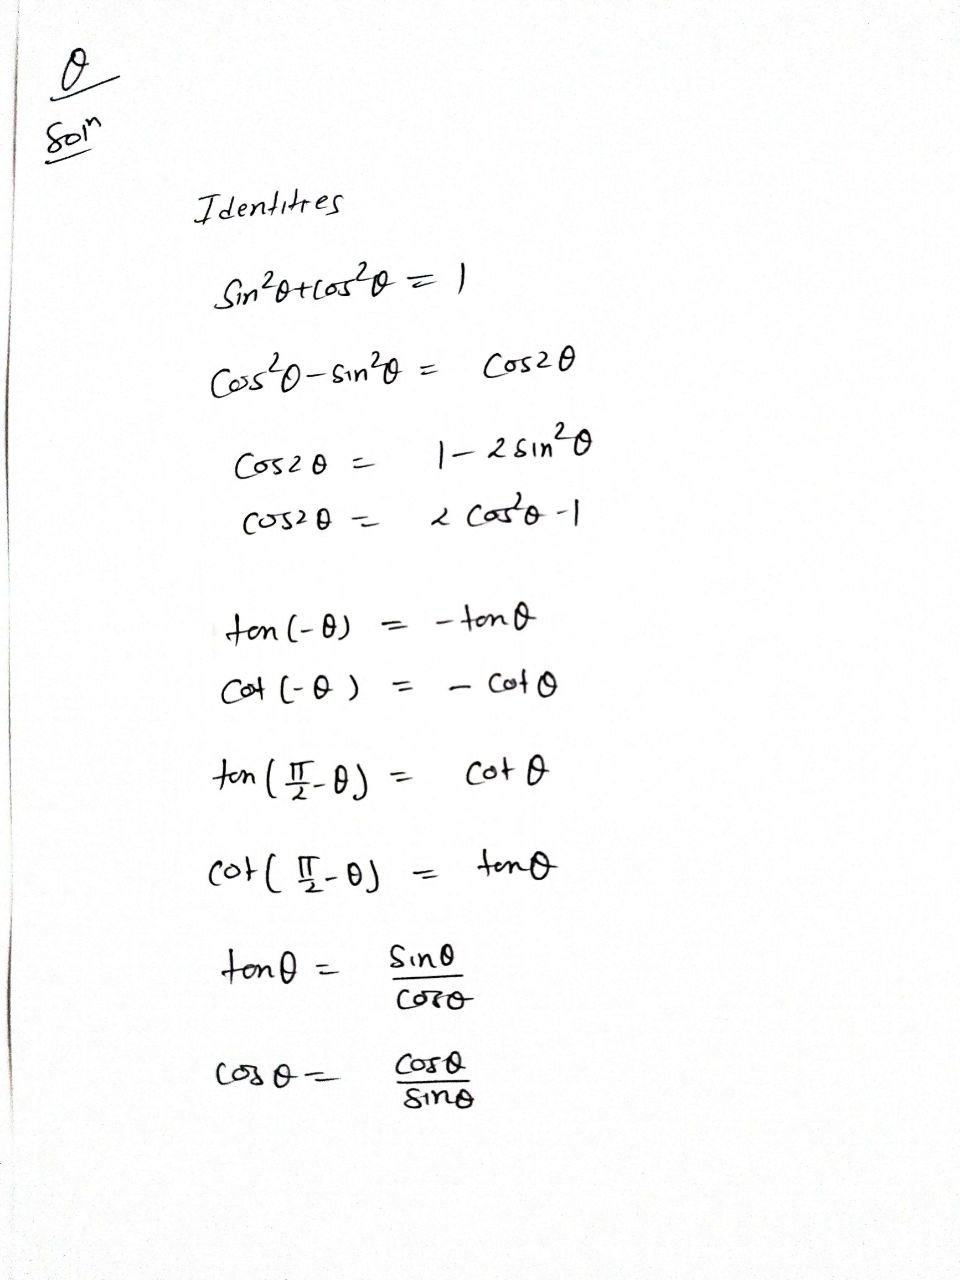 θ
Solⁿ
Identitres
Sin²θ+cos²θ = 1
Cos²θ-sin²θ = Cos2θ
Cos2θ = 1-2sin²θ
cos2θ = 2cos²θ-1
tan(-θ) = -tanθ
Cot(-θ) = -Cotθ
tan(π/2-θ) = Cotθ
cot(π/2-θ) = tanθ
tanθ = Sinθ/cosθ
cosθ = Cosθ/Sinθ